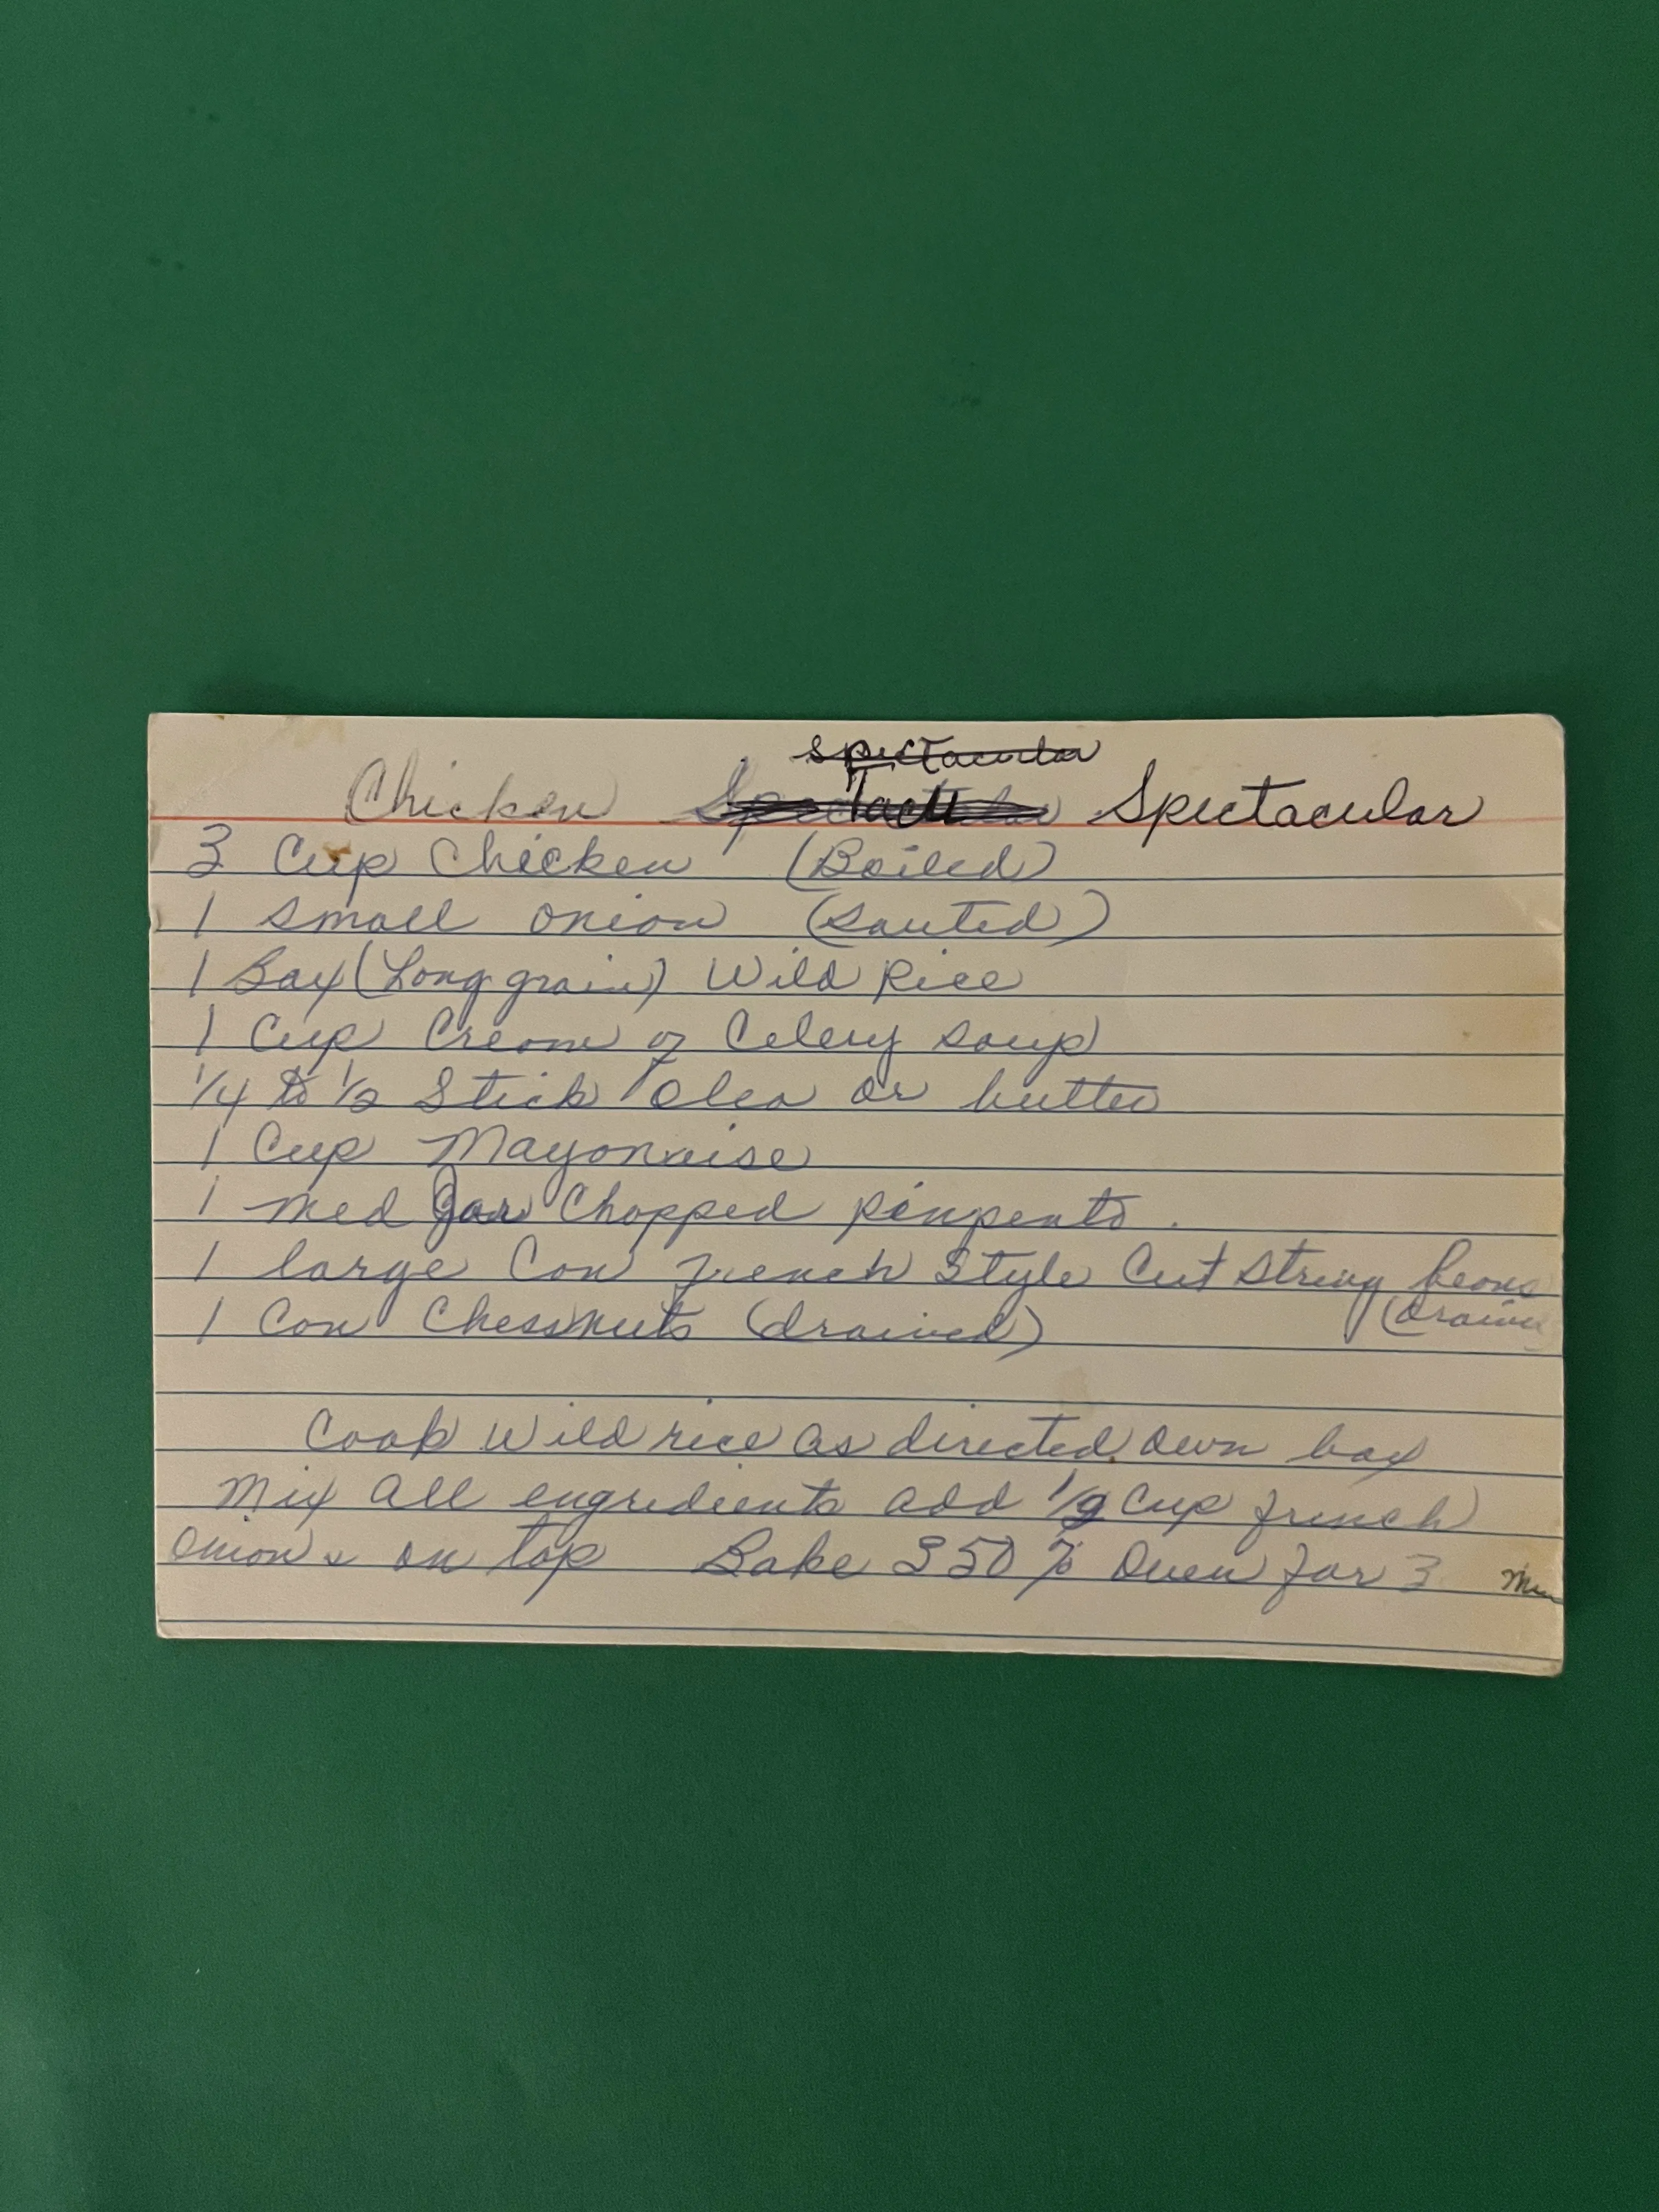 Spectacular
Chicken Spectacular Spectacular
3 Cup Chicken (Boiled)
1 small onion (sauted)
1 Box (Long grain) Wild Rice
1 Cup Cream of Celery soup
1/4 to 1/2 Stick Oleo or butter
1 Cup Mayonaise
1 med Jar Chopped pimpento.
1 large Can French Style Cut String beans
1 Can Chessnuts (drained) (drained
Cook Wild rice as directed own box
Mix all engredients add 1/2 Cup french
onions on top Bake 350 % Oven for 3 Min